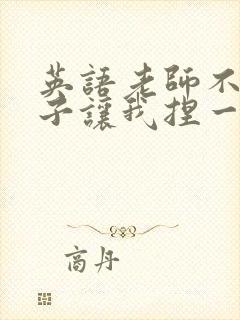 英語老師不
子讓我捏一
商丹